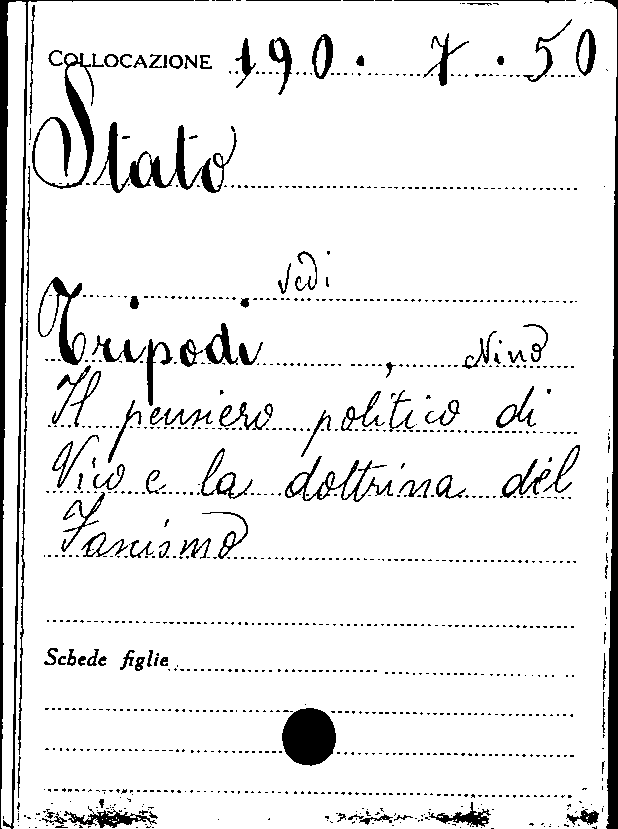 COLLOCAZIONE 190 . 7 . 50
Stato
vedi
Tripodi , Nino
Il pensiero politico di
Vico e la dottrina del
Fascismo
Schede figlie